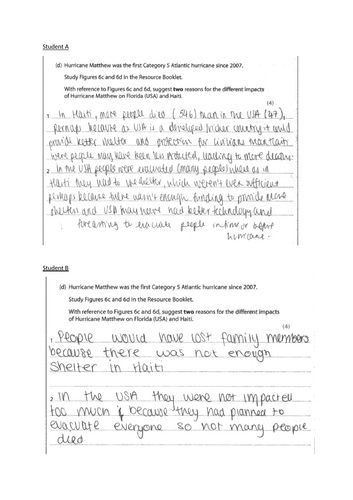 Student A
(d) Hurricane Matthew was the first Category 5 Atlantic hurricane since 2007.
Study Figures 6c and 6d in the Resource Booklet.
With reference to Figures 6c and 6d, suggest two reasons for the different impacts
of Hurricane Matthew on Florida (USA) and Haiti.
(4)
1 In Haiti, more people died (546) than in the USA (47),
perhaps because as USA is a developed richer country it could
provide better shelter and protection for civilians than Haiti
were people may have been less protected, leading to more deaths.
2 In the USA people were evacuated (many people) where as in
Haiti they had to use shelter, which weren't even sufficient
perhaps because there wasn't enough funding to provide more
shelters and USA may have had better technology and
to evacuate people in time or before
hurricane.
Student B
(d) Hurricane Matthew was the first Category 5 Atlantic hurricane since 2007.
Study Figures 6c and 6d in the Resource Booklet.
With reference to Figures 6c and 6d, suggest two reasons for the different impacts
of Hurricane Matthew on Florida (USA) and Haiti.
(4)
1 People would have lost family members
because there was not enough
shelter in Haiti
2 In the USA they were not impacted
too much because they had planned to
evacuate everyone so not many people
died